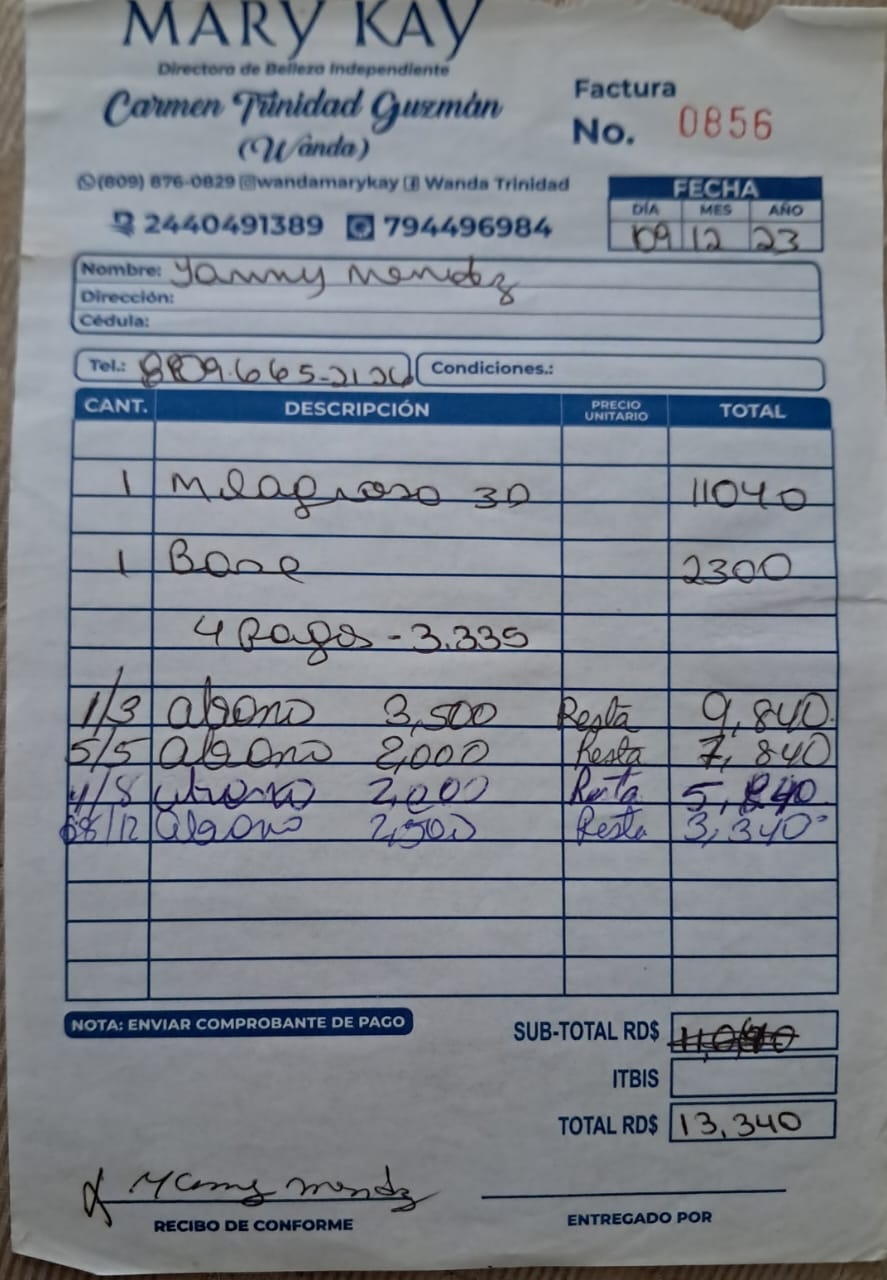 MARY KAY
Directora de Belleza Independiente
Carmen Trinidad Guzmán
(Wanda)
Factura
No. 0856
(809) 876-0829 @wandamarykay Wanda Trinidad
2440491389 794496984
FECHA
DÍA MES AÑO
09 12 23
Nombre: Yanny Mendez
Dirección:
Cédula:
Tel.: 809.665-2126 Condiciones.:
CANT. DESCRIPCIÓN PRECIO UNITARIO TOTAL
1 Milagroso 3D 11040
1 Base 2300
4 Pagos - 3.335
1/3 abono 3,500 Resta 9,840
5/5 abono 2,000 Resta 7,840
4/8 abono 2,000 Resta 5,840
08/12 abono 2,500 Resta 3,340
NOTA: ENVIAR COMPROBANTE DE PAGO
SUB-TOTAL RD$
ITBIS
TOTAL RD$ 13,340
Yanny Mendez
RECIBO DE CONFORME
ENTREGADO POR